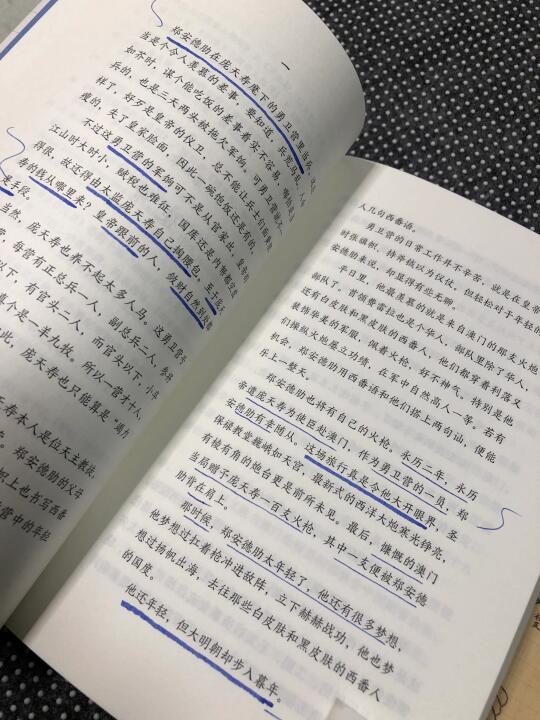 一
郑安德助在庞天寿麾下的勇卫营里当兵,
当是个令人羡慕的差事。要知道,兵荒马乱,
如芥时,谋个能吃饭的差事着实不容易,哪怕
兵的,也是三天两头被拖欠军饷,可勇卫营
样了,好歹是皇帝的仪卫,总不能让兵士们
瘦的,失了皇家脸面,因此,一碗饱饭还是有的。
不过这勇卫营的军饷可不是从官家出,皇帝的
江山时大时小,赋税也难征,国库还是内帑都
得很,故还得由太监庞天寿自己掏腰包,至于庞天
寿的钱从哪里来?皇帝跟前的人,敛财自然
手段。
当然,庞天寿也养不起太多人马。这勇卫营
营,每营有正总兵一人,副总兵一人,参
下,有官头二人,而官头以下,小
是个是一羊九牧。所以一营才千人
此,庞天寿也只能算是
寿本人是位天主教徒,
郑安德助的父母
织上也书写西番
营中的年轻
人几句西番话。
勇卫营的日常工作并不辛苦,就是在皇帝
时张旗帜,持斧钺以为仪仗,但轻松对于年轻的
安德助来说,却显得有些无聊。
平日里,他最羡慕的就是来自澳门的那支火
部队了。首领费雷拉也是个华人,部队里除了华人,
还有白皮肤和黑皮肤的西番人,他们都穿着利落又
装饰华美的军服,佩着火枪,好不神气。特别是他
们操纵火炮屡立功绩,在军中自然高人一等。若有
机会,郑安德助用西番语和他们搭上两句讪,便能
乐上一整天。
郑安德助也将有自己的火枪。永历二年,永历
帝遣庞天寿为使臣赴澳门,作为勇卫营的一员,郑
安德助有幸随从。这场旅行真是令他大开眼界,圣
保禄教堂巍峨如天宫,最新式的西洋大炮寒光铮亮,
有棱有角的炮台更是前所未见。最后,慷慨的澳门
当局赠予庞天寿一百支火枪,其中一支便被郑安德
助背在肩上。
那时候,郑安德助太年轻了,他还有很多梦想,
他梦想过扛着枪冲进敌阵,立下赫赫战功,他也梦
想过扬帆出海,去往那些白皮肤和黑皮肤的西番人
的国度。
他还年轻,但大明朝却步入暮年。